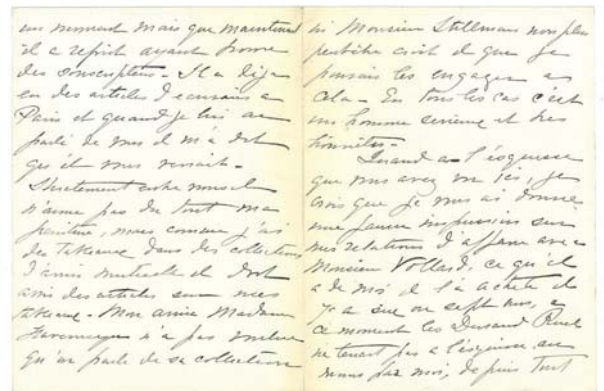 un moment mais que maintenant
il a repris ayant trouvé
des souscripteurs - Il a déja
eu des articles d'écrivains a
Paris et quand je lui ai
parlé de vous il m'a dit
qu'il vous verrait -
Strictement entre nous il
n'aime pas du tout ma
peinture, mais comme j'ai
des tableaux dans les collections
d'amis mutuelle il doit
avoir des articles sur mes
tableaux - Mon amie Madame
Havemeyer n'a pas voulue
qu'on parle de sa collection
ni Monsieur Stillman non plus
peutêtre croit il que je
pourrais les engager a
cela - En tous les cas c'est
un homme serieux et tres
honnête -
Quand a l'ésquisse
que vous avez vu ici, je
crois que je vous ai donné
une fausse impression sur
mes relations d'affaire avec
Monsieur Vollard, ce qu'il
a de moi il l'a acheté il
y a six ou sept mois, a
ce moment les Durand Ruel
ne tenant pas a l'ésquisse, au
moins pas moi, depuis tout